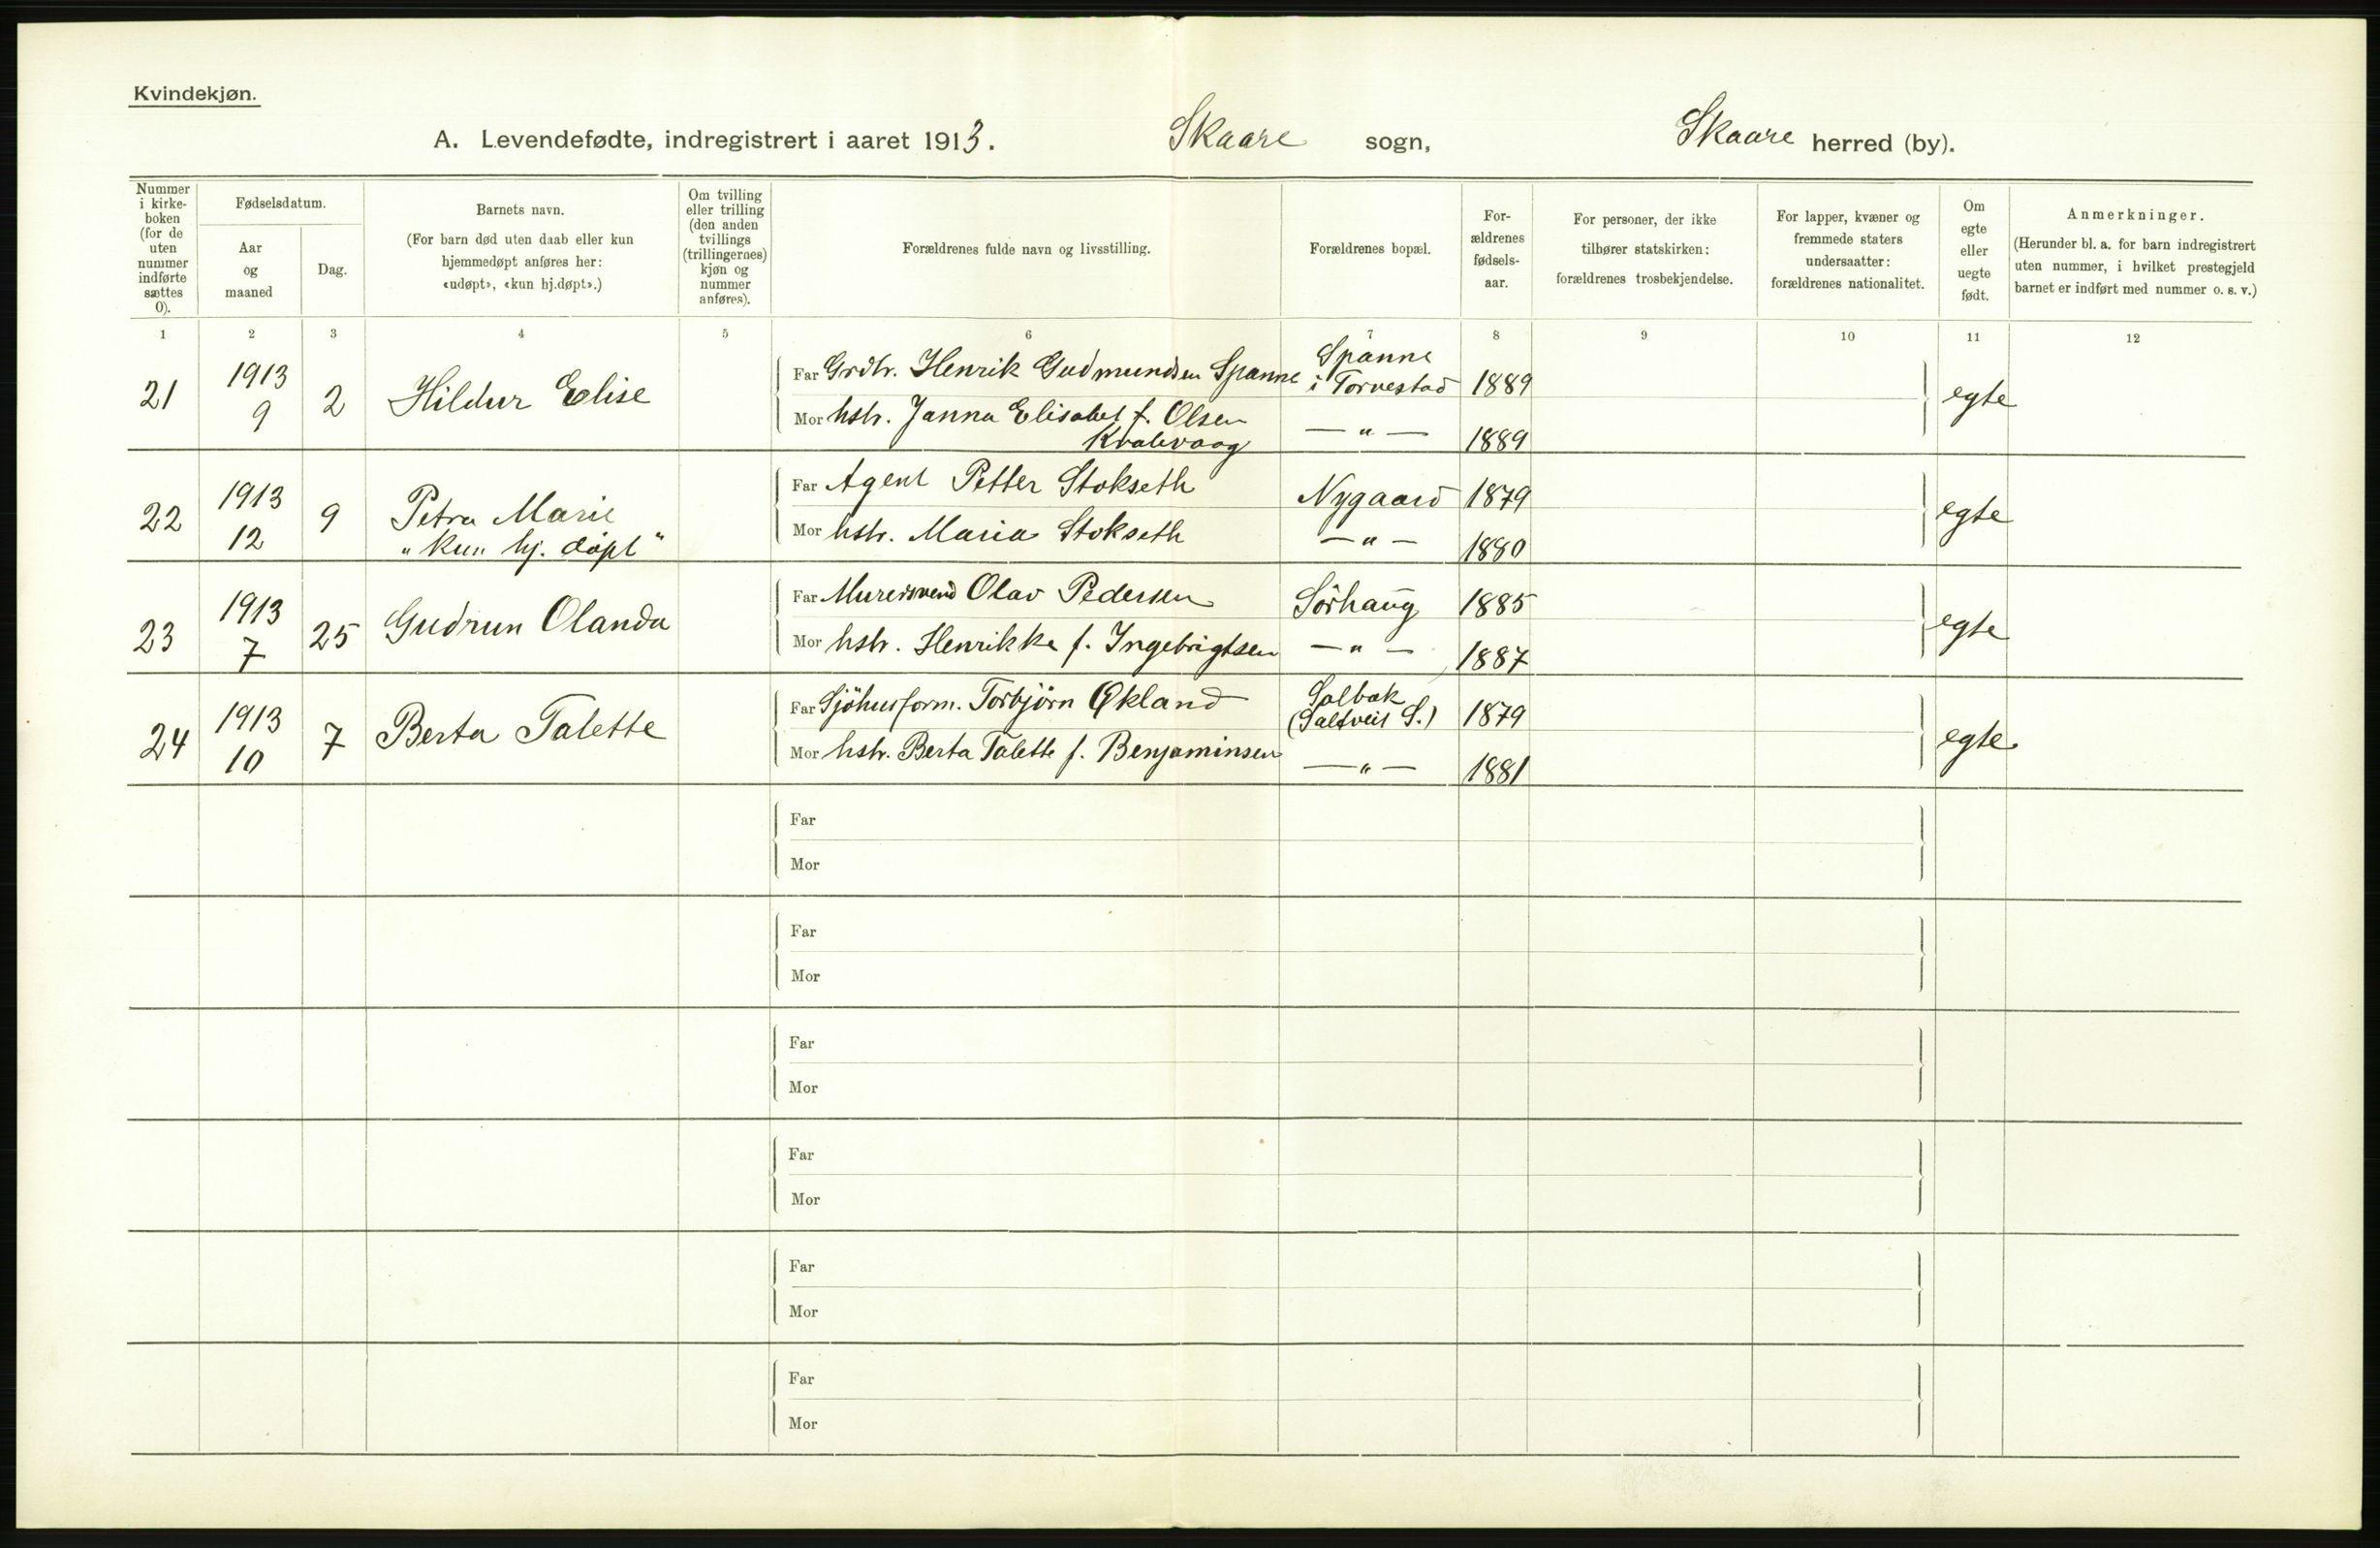 Kvindekjøn.
A. Levendefødte, indregistrert i aaret 1913. Skaare sogn, Skaare herred (by).
Nummer i kirke-boken (for de uten nummer indførte sættes 0).
Fødselsdatum.
Aar og maaned
Dag.
Barnets navn.
(For barn død uten daab eller kun hjemmedøpt anføres her: «udøpt», «kun hj.døpt».)
Om tvilling eller trilling (den anden tvillings (trillingernes) kjøn og nummer anføres).
Forældrenes fulde navn og livsstilling.
Forældrenes bopæl.
For-ældrenes fødsels-aar.
For personer, der ikke tilhører statskirken: forældrenes trosbekjendelse.
For lapper, kvæner og fremmede staters undersaatter: forældrenes nationalitet.
Om egte eller uegte født.
Anmerkninger.
(Herunder bl. a. for barn indregistrert uten nummer, i hvilket prestegjeld barnet er indført med nummer o. s. v.)
1 2 3 4 5 6 7 8 9 10 11 12
21 1913 9 2 Hildur Elise
Far Grdbr. Henrik Gudmundsen Spanne Spanne i Torvestad 1889
Mor hstr. Janna Elisabet f. Olsen Kvalevaag —„— 1889
egte
22 1913 12 9 Petra Marie
„kun hj. døpt"
Far Agent Petter Stokseth Nygaard 1879
Mor hstr. Maria Stokseth —„— 1880
egte
23 1913 7 25 Gudrun Olanda
Far Murersvend Olav Pedersen Sörhaug 1885
Mor hstr. Henrikke f. Ingebrigtsen —„— 1887
egte
24 1913 10 7 Berta Talette
Far Sjöhusform. Torbjörn Økland Solbak (Saltveit S.) 1879
Mor hstr. Berta Talette f. Benjaminsen —„— 1881
egte
Far
Mor
Far
Mor
Far
Mor
Far
Mor
Far
Mor
Far
Mor